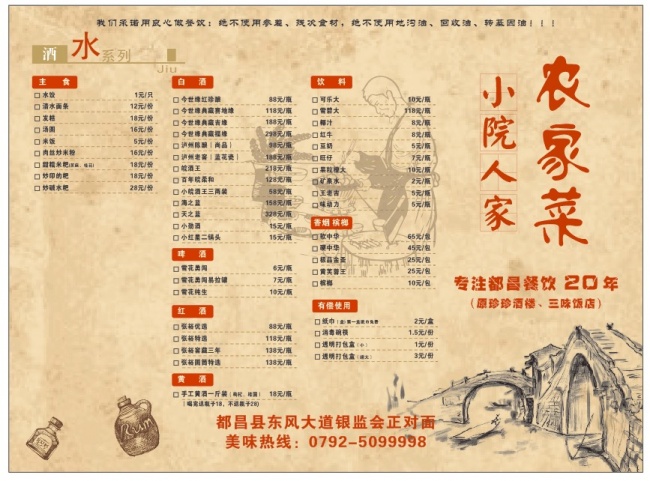 我们承诺用良心做餐饮：绝不使用地沟油、回收油、转基因油！！！
酒水系列
Jiu
主 食
水饺 1元/只
清水面条 12元/份
发粑 18元/份
汤圆 16元/份
米饭 5元/份
肉丝炒米粉 16元/份
18元/份
炒印的粑 18元/份
炒碱水粑 28元/份
白 酒
今世缘红珍酿 88元/瓶
118元/瓶
188元/瓶
298元/瓶
泸州陈酿（尚品） 98元/瓶
泸州老窖（蓝花瓷） 188元/瓶
皖酒王 218元/瓶
百年皖柔和 128元/瓶
小皖酒王三两装 58元/瓶
海之蓝 158元/瓶
天之蓝 328元/瓶
小劲酒 15元/瓶
小红星二锅头 15元/瓶
啤 酒
雪花奥淘 6元/瓶
雪花奥淘易拉罐 7元/瓶
雪花纯生 10元/瓶
红 酒
张裕优选 88元/瓶
张裕特选 118元/瓶
张裕窖藏三年 138元/瓶
张裕圆筒特选 138元/瓶
黄 酒
手工黄酒一斤装 18元/瓶
饮 料
可乐大 10元/瓶
雪碧大 118元/瓶
椰汁 8元/瓶
红牛 8元/瓶
豆奶 5元/瓶
旺仔 7元/瓶
果粒橙大 10元/瓶
矿泉水 2元/瓶
王老吉 5元/瓶
味动力 5元/瓶
香烟 槟榔
软中华 65元/包
硬中华 45元/包
极品金圣 25元/包
黄芙蓉王 25元/包
槟榔 10元/包
有偿使用
纸巾 2元/盒
消毒碗筷 1.5元/份
透明打包盒（小） 1元/份
透明打包盒（大） 3元/份
农家菜
小院人家
专注都昌餐饮 20 年
（原珍珍酒楼、三味饭店）
都昌县东风大道银监会正对面
美味热线：0792-5099998